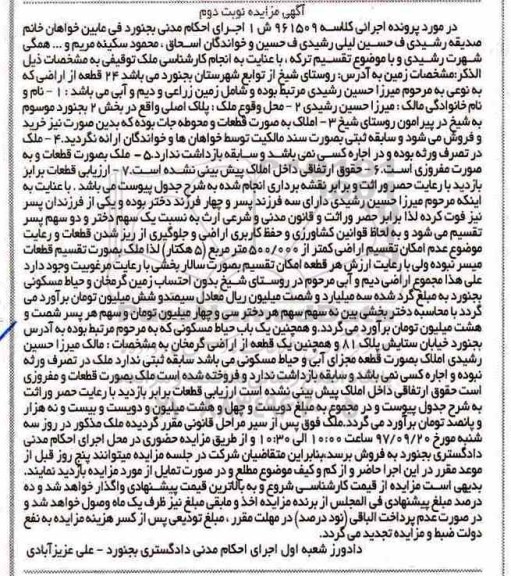 آگهی مزایده نوبت دوم
در مورد پرونده اجرائی کلاسه ۹۶۱۵۰۹ ش ۱ اجرای احکام مدنی بجنورد فی مابین خواهان خانم
صدیقه رشیدی ف حسین لیلی رشیدی ف حسین و خواندگان اسحاق ، محمود سکینه مریم و ... همگی
شهرت رشیدی و با موضوع تقسیم ترکه ، با عنایت به انجام کارشناسی ملک توقیفی به مشخصات ذیل
الذکر:مشخصات زمین به آدرس: روستای شیخ از توابع شهرستان بجنورد می باشد ۲۴ قطعه از اراضی که
به نوعی به مرحوم میرزا حسین رشیدی مرتبط بوده و شامل زمین زراعی و دیم و آبی می باشد : ۱ - نام و
نام خانوادگی مالک : میرزا حسین رشیدی ۲ - محل وقوع ملک : پلاک اصلی واقع در بخش ۲ بجنورد موسوم
به شیخ در پیرامون روستای شیخ ۳ - املاک به صورت قطعات و محوطه جات بوده که بدین صورت نیز خرید
و فروش می شود و سابقه ثبتی بصورت سند مالکیت توسط خواهان ها و خواندگان ارائه نگردید.۴ - ملک
در تصرف ورثه بوده و در اجاره کسی نمی باشد و سابقه بازداشت ندارد.۵ - ملک بصورت قطعات و به
صورت مفروزی است.۶ - حقوق ارتفاقی داخل املاک پیش بینی نشده است.۷ - ارزیابی قطعات برابر
بازدید با رعایت حصر وراثت و برابر نقشه برداری انجام شده به شرح جدول پیوست می باشد . با عنایت به
اینکه مرحوم میرزا حسین رشیدی دارای سه فرزند پسر و چهار فرزند دختر بوده و یکی از فرزندان پسر
نیز فوت کرده لذا برابر حصر وراثت و قانون مدنی و شرعی ارث به نسبت یک سهم دختر و دو سهم پسر
تقسیم می شود و به لحاظ قوانین کشاورزی و حفظ کاربری اراضی و جلوگیری از ریز شدن قطعات و رعایت
موضوع عدم امکان تقسیم اراضی کمتر از ۵۰۰/۰۰۰ متر مربع (۵ هکتار) لذا ملک بصورت تقسیم قطعات
میسر نبوده ولی با رعایت ارزش هر قطعه امکان تقسیم بصورت سالار بخشی با رعایت مرغوبیت وجود دارد
علی هذا مجموع اراضی دیم و آبی مرحوم در روستای شیخ بدون احتساب زمین گرمخان و حیاط مسکونی
بجنورد به مبلغ گرد شده سه میلیارد و شصت میلیون ریال معادل سیصدو شش میلیون تومان برآورد می
گردد با محاسبه دختر بخشی بین نه سهم سهم هر دختر سی و چهار میلیون تومان و سهم هر پسر شصت و
هشت میلیون تومان برآورد می گردد.و همچنین یک باب حیاط مسکونی که به مرحوم مرتبط بوده به آدرس
بجنورد خیابان ستایش پلاک ۸۱ و همچنین یک قطعه از اراضی گرمخان به مشخصات : مالک میرزا حسین
رشیدی املاک بصورت قطعه مجزای آبی و حیاط مسکونی می باشد سابقه ثبتی ندارد ملک در تصرف ورثه
نبوده و اجاره کسی نمی باشد و سابقه بازداشت ندارد و فروخته شده است ملک بصورت قطعات و مفروزی
است حقوق ارتفاقی داخل املاک پیش بینی نشده است ارزیابی قطعات برابر بازدید با رعایت حصر وراثت
به شرح جدول پیوست و در مجموع به مبلغ دویست و چهل و هشت میلیون و دویست و بیست و نه هزار
و پانصد تومان برآورد می گردد.ملک فوق پس از سیر مراحل قانونی مقرر گردیده ملک مذکور در روز سه
شنبه مورخ ۹۷/۰۹/۲۰ ساعت ۱۰:۰۰ الی ۱۰:۳۰ و از طریق مزایده حضوری در محل اجرای احکام مدنی
دادگستری بجنورد به فروش برسد.بنابراین متقاضیان شرکت در جلسه مزایده میتوانند پنج روز قبل از
موعد مقرر در این اجرا حاضر و از کم و کیف موضوع مطلع و در صورت تمایل از مورد مزایده بازدید نمایند.
بدیهی است مزایده از قیمت کارشناسی شروع و به بالاترین قیمت پیشنهادی واگذار خواهد شد و ده
درصد مبلغ پیشنهادی فی المجلس از برنده مزایده اخذ و مابقی مبلغ نیز ظرف یک ماه وصول خواهد شد و
در صورت عدم پرداخت الباقی (نود درصد) در مهلت مقرر ، مبلغ تودیعی پس از کسر هزینه مزایده به نفع
دولت ضبط و مزایده تجدید می گردد.
دادورز شعبه اول اجرای احکام مدنی دادگستری بجنورد - علی عزیزآبادی